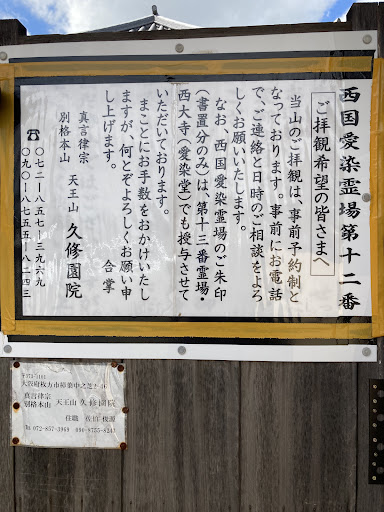 西国愛染霊場第十二番
ご拝観希望の皆さまへ
当山のご拝観は、事前予約制と
なっております。事前にお電話
で、ご連絡と日時のご相談をよろ
しくお願いいたします。
なお、西国愛染霊場のご朱印
(書置分のみ)は、第十三番霊場・
西大寺(愛染堂)でも授与させて
いただいております。
まことにお手数をおかけいたし
ますが、何とぞよろしくお願い申
し上げます。
合掌
真言律宗
別格本山 天王山 久修園院
☎ 〇七二―八五七―三九六九
〇九〇―八七五五―八二四三
〒573-
大阪府枚方市楠葉中之芝2-46
真言律宗
別格本山 天王山 久修園院
住職
Tel 072-857-3969 090-8755-8243